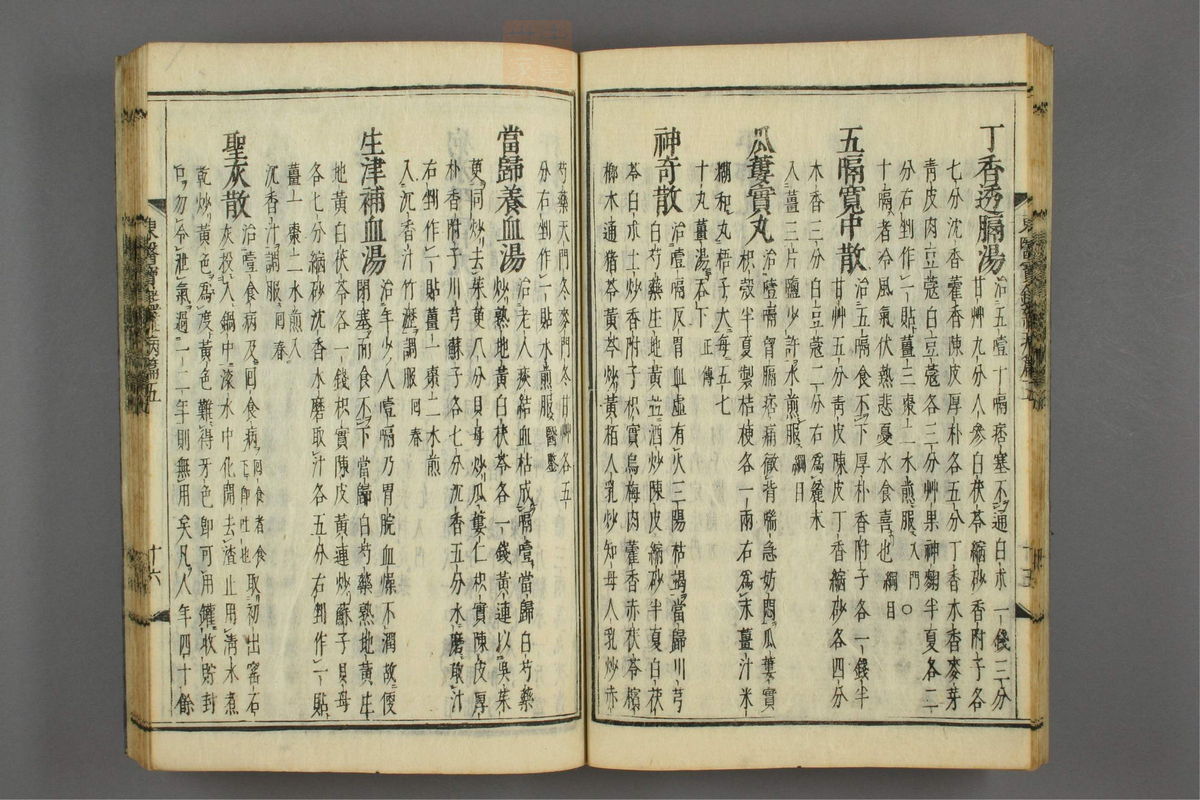 丁香透膈湯 治五噎十膈痞塞不通白朮一錢三分
甘艸九分人參白茯苓縮砂香附子各
七分沈香藿香陳皮厚朴各五分丁香木香麥芽
青皮肉豆蔻白豆蔻各三分艸果神麴半夏各二
分右剉作一貼薑三棗二水煎服入門○
十膈者冷風氣伏熱悲憂水食喜也綱目
五膈寬中散 治五膈食不下厚朴香附子各一錢半
甘艸五分青皮陳皮丁香縮砂各四分
木香三分白豆蔻二分右爲麄末
入薑三片鹽少許水煎服綱目
瓜蔞實丸 治噎膈胷膈痞痛徹背喘急妨悶瓜蔞實
枳殼半夏製桔梗各一兩右爲末薑汁米
糊和丸梧子大每五七
十丸薑湯呑下正傳
神奇散 治噎膈反胃血虛有火三陽枯竭當歸川芎
白芍藥生地黃並酒炒陳皮縮砂半夏白茯
苓白朮土炒香附子枳實烏梅肉藿香赤茯苓檳
榔木通猪苓黃芩炒黃栢人乳炒知母人乳炒赤
芍藥天門冬麥門冬甘艸各五
分右剉作一貼水煎服醫鑒
當歸養血湯 治老人痰結血枯成膈噎當歸白芍藥
炒熟地黃白茯苓各一錢黃連以吳茱
萸同炒去茱萸八分貝母炒瓜蔞仁枳實陳皮厚
朴香附子川芎蘇子各七分沉香五分水磨取汁
右剉作一貼薑一棗二水煎
入沉香汁竹瀝調服回春
生津補血湯 治年少人噎膈乃胃脘血燥不潤故便
閉塞而食不下當歸白芍藥熟地黃生
地黃白茯苓各一錢枳實陳皮黃連炒蘇子貝母
各七分縮砂沈香水磨取汁各五分右剉作一貼
薑一棗二水煎入
沉香汁調服回春
聖灰散 治噎食病及回食病回食者食下卽吐也取初出窰石
灰投入鍋中滾水中化開去渣止用淸水煮
乾炒黃色爲度黃色難得牙色卽可用鑵收貯封
口勿令泄氣過一二年則無用矣凡人年四十餘
東醫寶鑑雜病篇五
十六